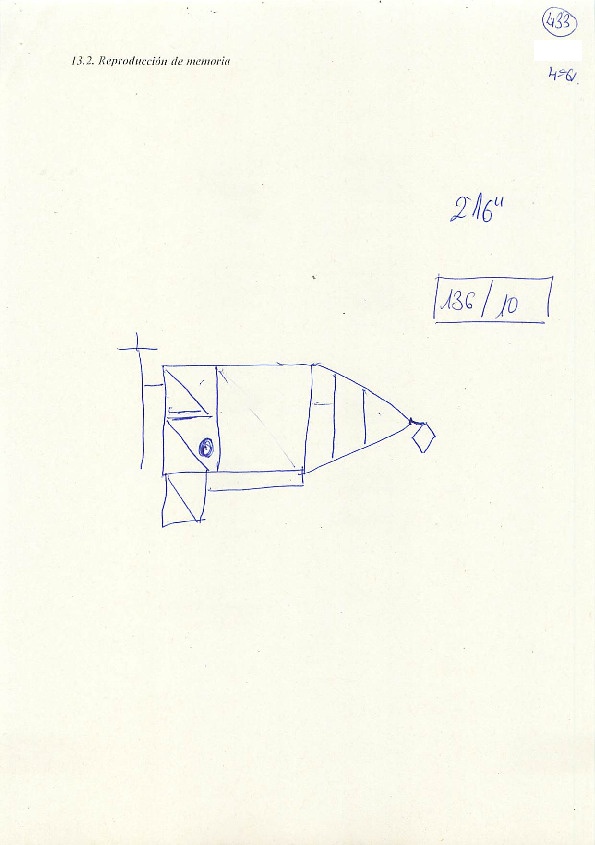 433
13.2. Reproducción de memoria
4º6.
2'16"
136/10